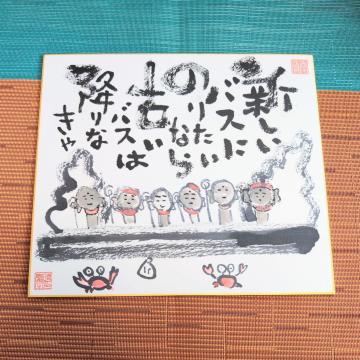 新しい
バスに
のりたい
なら
古い
バスは
降りな
きゃ